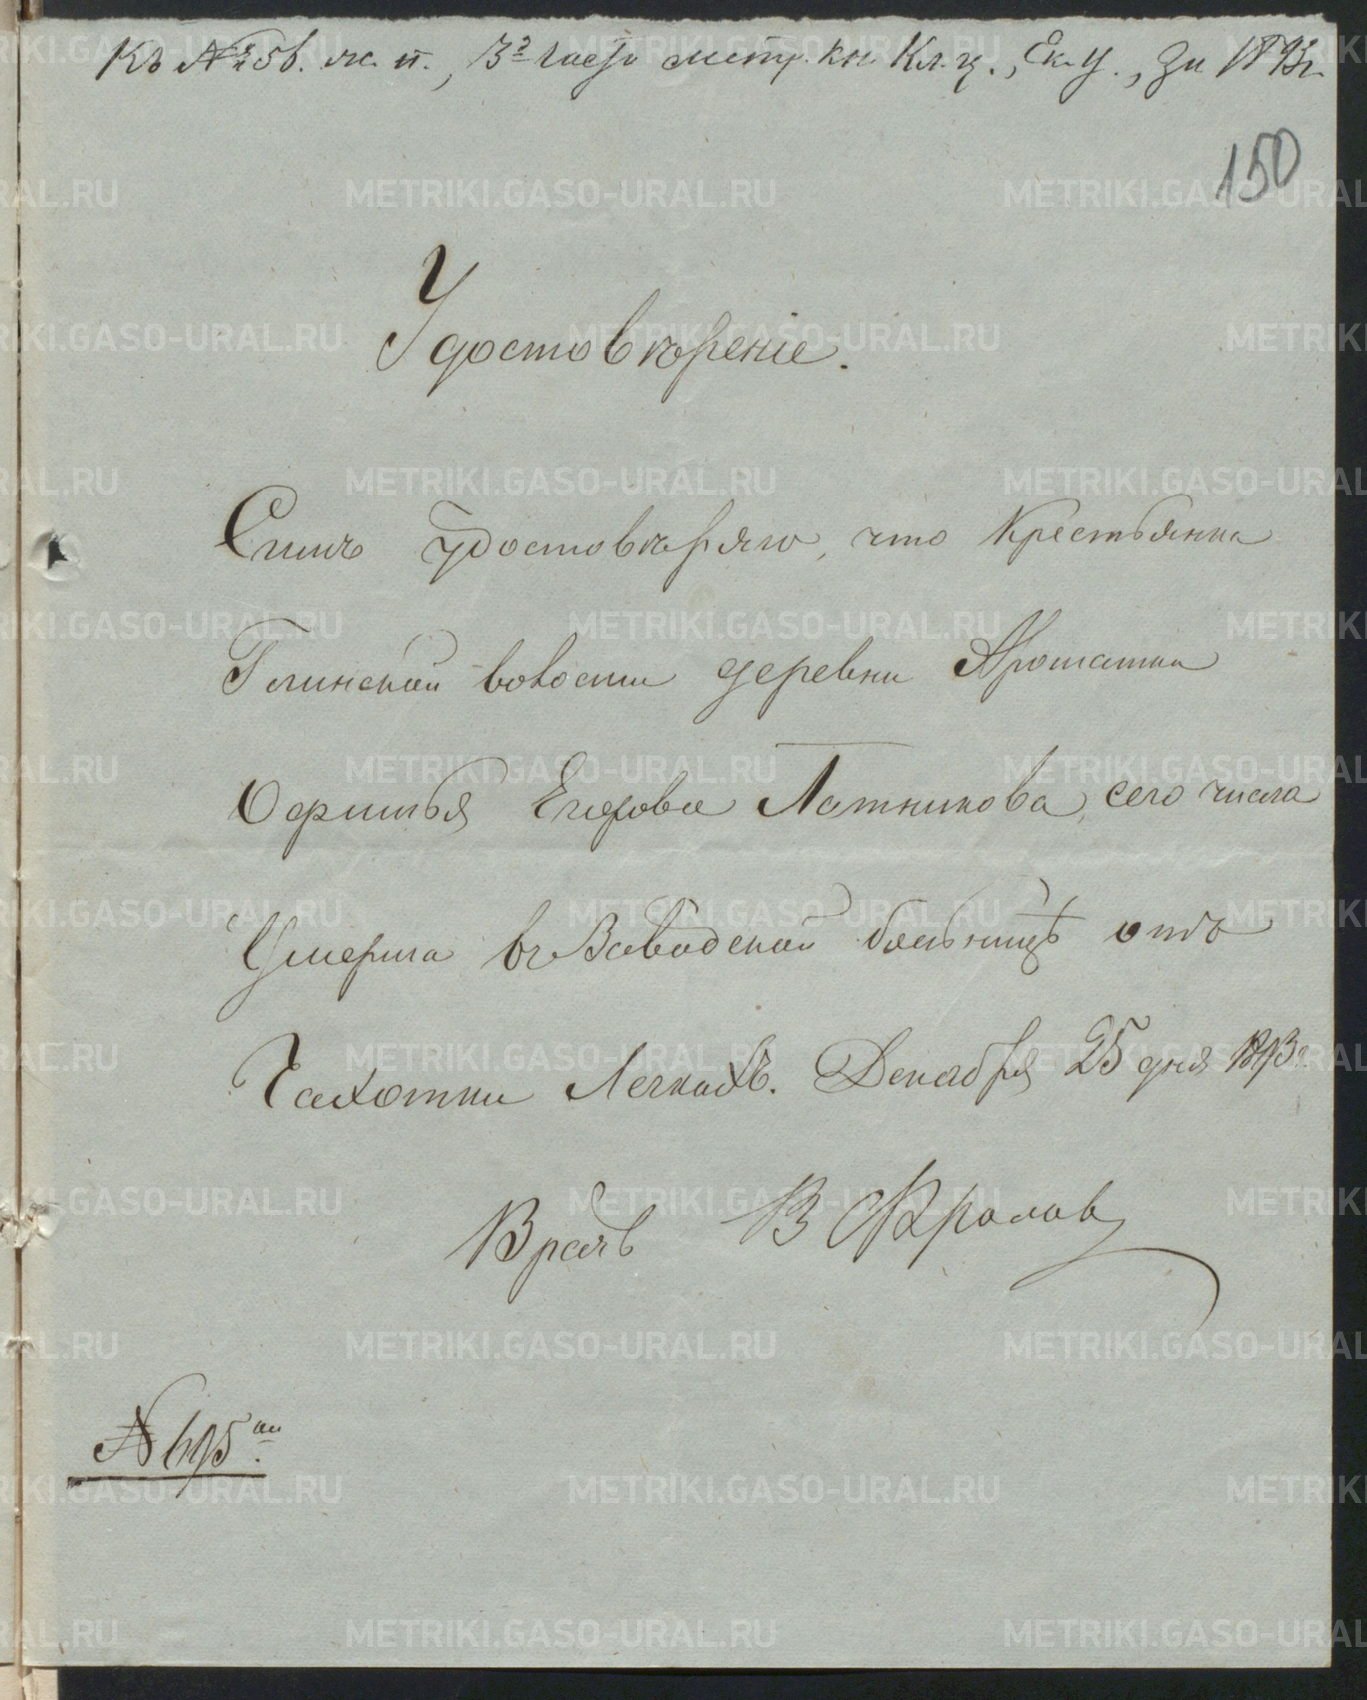 Къ № 56. ж. п., 3й части метр. кн. Кл. ц., Ек. у., за 1893 г.
150
Удостовѣреніе.
Симъ удостовѣряю, что крестьянка
Глинской волости деревни Арамашки
Офимья Егорова Латникова, сего числа
Умерла въ Заводской больницѣ отъ
Чахотки Легкихъ. Декабря 25 дня 1893 г.
Врачъ В Фролов
№ 695
METRIKI.GASO-URAL.RU